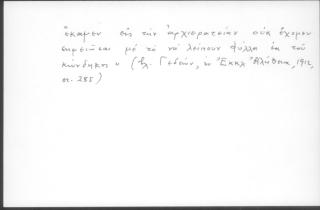 ἔκαμεν εἰς τὴν ἀρχιερατείαν οὐκ ἔχομεν
σημειῶσαι μὲ τὸ νὰ λείπουν φύλλα ἐκ τοῦ
κώνδηκος » (Βλ. Γεδεών, ἐν Ἐκκλ. Ἀλήθεια, 1912,
σ. 285)